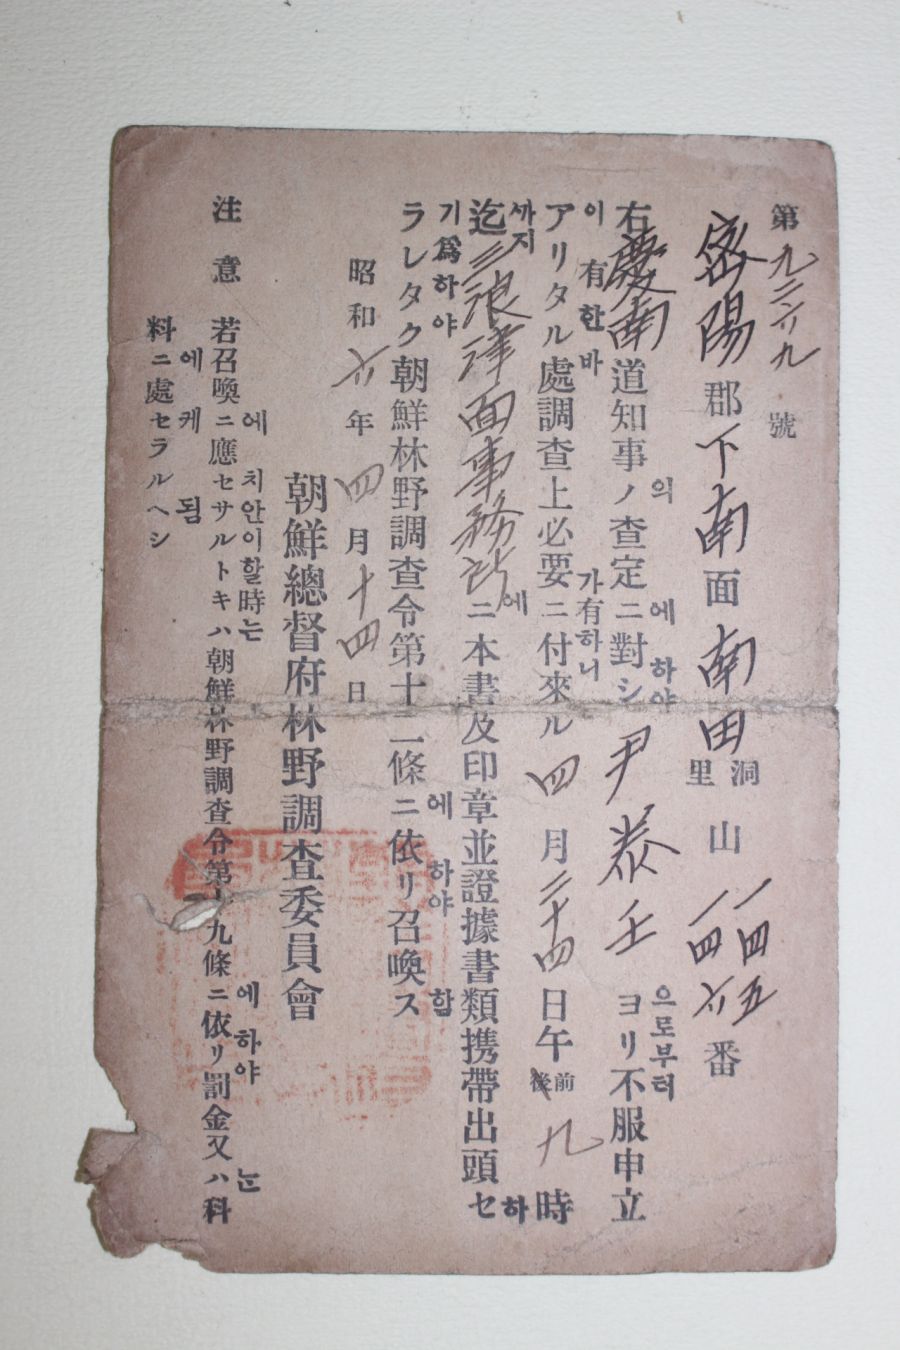 第九二六九號
密陽郡下南面南田洞里山一四五 一四六番
右慶南道知事ノ査定ニ對シ尹泰壬ヨリ不服申立
의 에하야 으로부터
アリタル處調査上必要ニ付來ル四月二十四日午前後九時
이有한바 가有하니
迄三浪津面事務所ニ本書及印章並證據書類携帶出頭セ
까지 에 하
ラレタク朝鮮林野調査令第十二條ニ依リ召喚ス
기爲하야 에하야 함
昭和六年四月十四日
朝鮮總督府林野調査委員會
注意 若召喚ニ應セサルトキハ朝鮮林野調査令第十九條ニ依リ罰金又ハ科
에치안이할時는 에하야 는
料ニ處セラルヘシ
에케됨